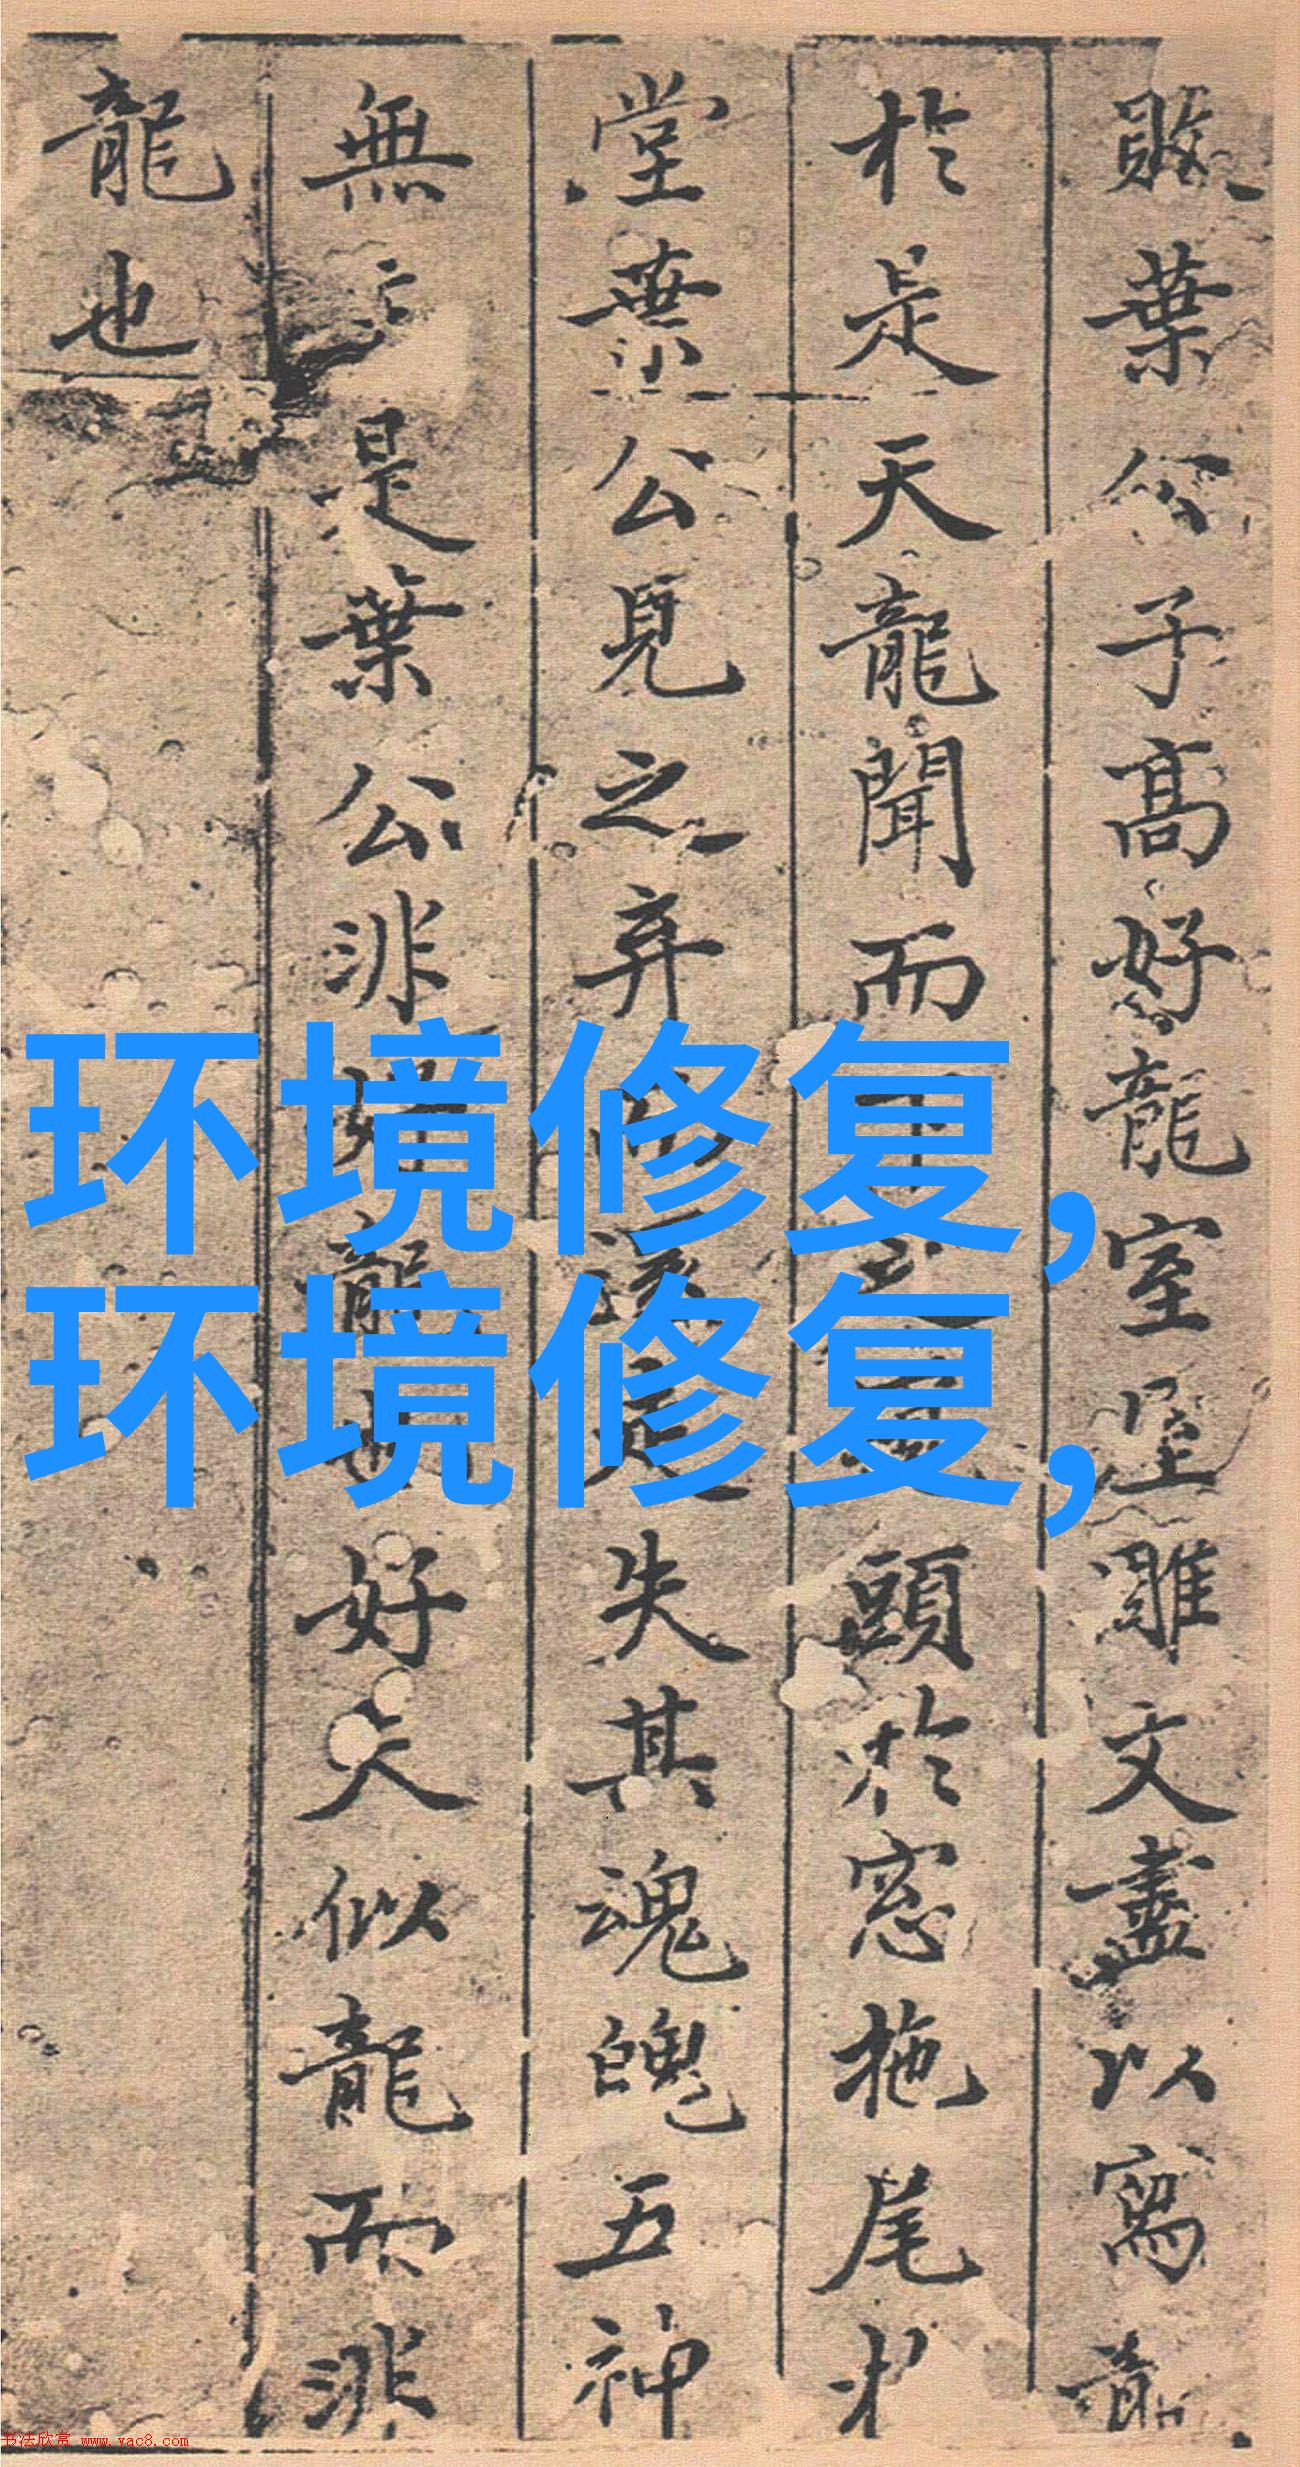 敗葉公子高好龍室屋雕文盡以寫龍
於是天龍聞而下之窺頭於窓拖尾於
堂葉公見之弃而還走失其魂魄五神
無主是葉公非好龍也好夫似龍而非
龍也
环境修复,
环境修复,
书法欣赏 www.yac8.com